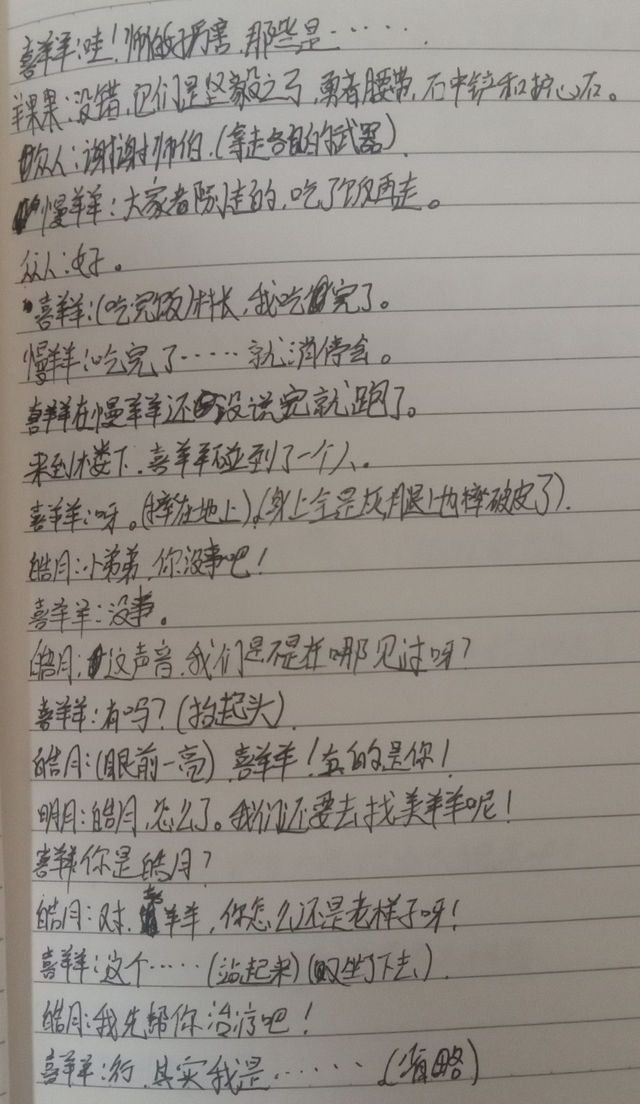 喜羊羊:哇!师伯好厉害,那些是……
羊果果:没错,它们是坚毅之弓,勇者腰带,石中铲和护心石。
众人:谢谢师伯。(拿走各自的武器)
慢羊羊:大家都别走的,吃了饭再走。
众人:好。
喜羊羊:(吃完饭)村长,我吃完了。
慢羊羊:吃完了……就消停会。
喜羊羊在慢羊羊还没说完就跑了。
来到木楼下,喜羊羊碰到了一个人。
喜羊羊:呀。(摔在地上)(身上全是灰,腿上也摔破皮了)。
皓月:小弟弟,你没事吧!
喜羊羊:没事。
皓月:这声音,我们是不是在哪见过呀?
喜羊羊:有吗?(抬起头)
皓月:(眼前一亮)喜羊羊!真的是你!
明月:皓月,怎么了。我们还要去找美羊羊呢!
喜羊羊:你是皓月?
皓月:对,喜羊羊,你怎么还是老样子呀!
喜羊羊:这个……(站起来)(又坐了下去)
皓月:我先帮你治疗吧!
喜羊羊:行,其实我是……(省略)